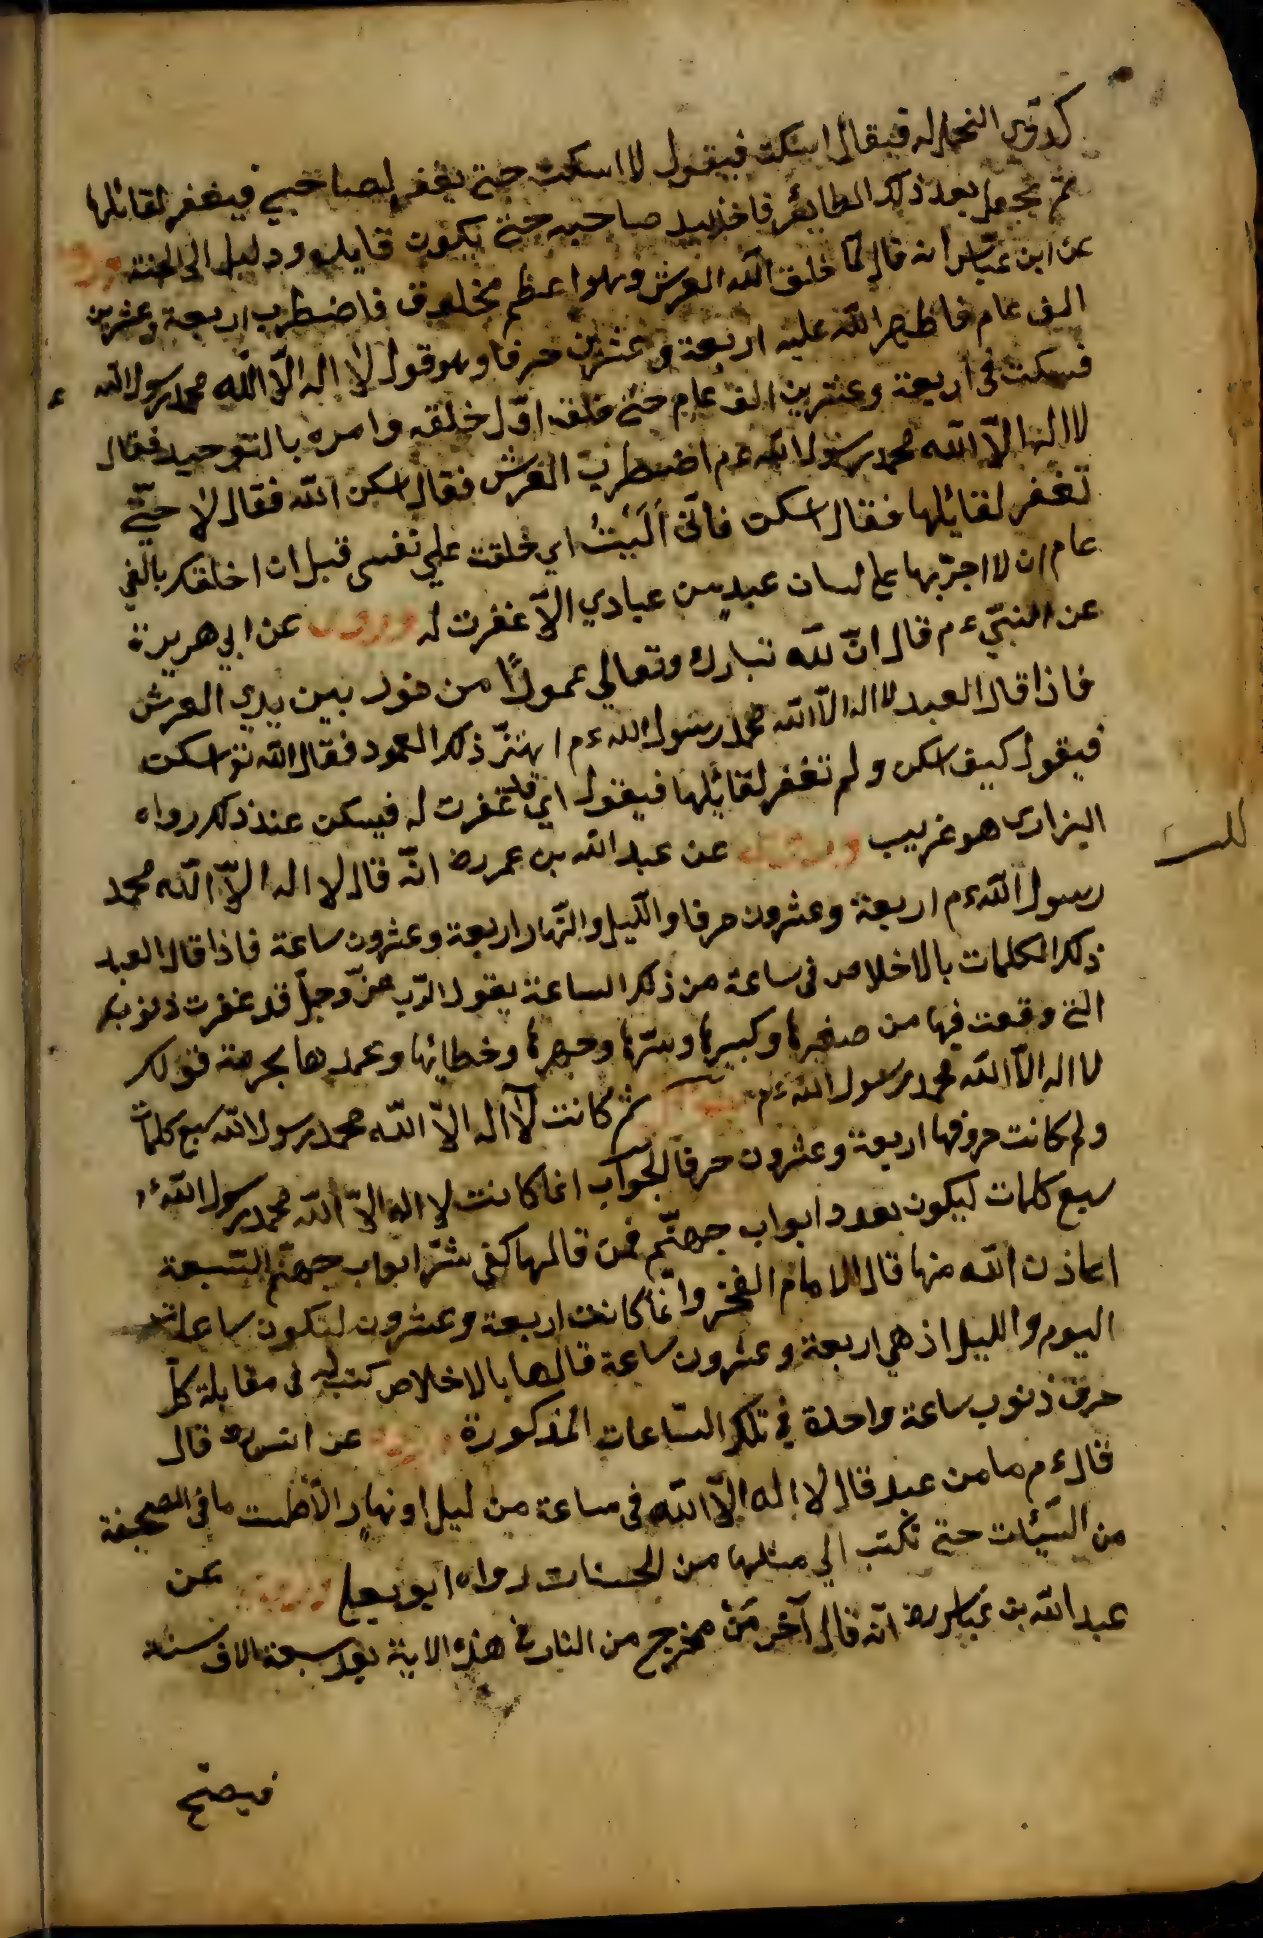 كدوي النحل له فيقال اسكت فيقول لا اسكت حتى يغفر لصاحبي فيغفر لقائلها
ثم يجعل بعد ذلك الطائر فاخذ بيد صاحبه حتى يكون قايده ودليله الى الجنة
عن ابن عباس انه قال لما خلق الله العرش وهو اعظم مخلوق فاضطرب اربعة وعشرين
الف عام فاظهر الله عليه اربعة وعشرين حرفا وهو قول لا اله الا الله محمد رسول الله
فسكت في اربعة وعشرين الف عام حتى خلق اول خلقه وامره بالتوحيد فقال
لا اله الا الله محمد رسول الله ءم اضطرب العرش فقال اسكن الله فقال لا حتى
تغفر لقائلها فقال اسكن فانى آلَيْتُ اي خلقت علي نفسى قبل ان اخلقك بالفي
عام ان لا اجريها على لسان عبد من عبادي الا غفرت له وروى عن ابي هريرة
عن النبي ءم قال ان لله تبارك وتعالي عمودًا من نور بين يدي العرش
فاذا قال العبد لا اله الا الله محمد رسول الله ءم اهتز ذلك العمود فقال الله تع اسكت
فيقول كيف اسكن ولم تغفر لقائلها فيقول اي قد غفرت له فيسكن عند ذلك رواه
البزارى هو غريب وروى عن عبد الله بن عمر رض انه قال لا اله الا الله محمد
رسول الله ءم اربعة وعشرون حرفا والليل والنهار اربعة وعشرون ساعة فاذا قال العبد
ذلك الكلمات بالاخلاص فى ساعة من ذلك الساعة يقول الرب عز وجل قد غفرت ذنوبك
التى وقعت فيها من صغيرها وكبيرها وسرها وجهرها وخطائها وعمدها بحرمة قولك
لا اله الا الله محمد رسول الله ءم ثم كانت لا اله الا الله محمد رسول الله سبع كلمات
ولم كانت حروفها اربعة وعشرون حرفا الجواب انما كانت لا اله الا الله محمد رسول الله ءم
سبع كلمات ليكون بعدد ابواب جهنم فمن قالها كفى شر ابواب جهنم السبعة
اعاذن الله منها قال الامام الفخر وانما كانت اربعة وعشرون لتكون ساعات
اليوم والليل اذ هي اربعة وعشرون ساعة قالها بالاخلاص كتب له فى مقابلة كل
حرف ذنوب ساعة واحدة في تلك الساعات المذكورة وروى عن انس رض قال
قال ءم ما من عبد قال لا اله الا الله فى ساعة من ليل او نهار الا طمست ما فى الصحيفة
من السيئات حتى تكتب الي مثلها من الحسنات رواه ابو يعلى وروى عن
عبد الله بن عباس رض انه قال آخر مَنْ يخرج من النار في هذه الامة بعد سبعة الاف سنة
فيصيح